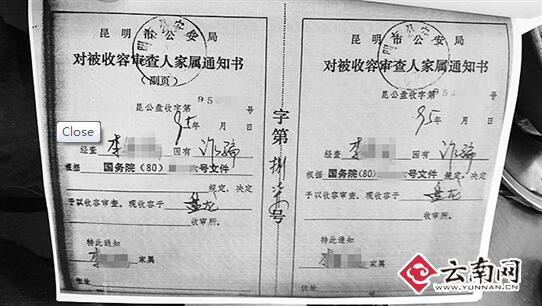 昆明市公安局
对被收容审查人家属通知书
(副页)
昆公盘收字第 95 号
95年 月 日
经查 李 因有 诈骗
根据 国务院(80) 号文件
规定,决定
予以收容审查。现收容于 盘龙
收审所。
特此通知
李 家属
住址
字第 号
昆明市公安局
对被收容审查人家属通知书
昆公盘收字第 95
95年 月 日
经查 李 因有 诈骗
根据 国务院(80) 号文件
规定,决定
予以收容审查。现收容于 盘龙
收审所。
特此通知
李 家属
住址
Close
云南网
WWW.YUNNAN.CN